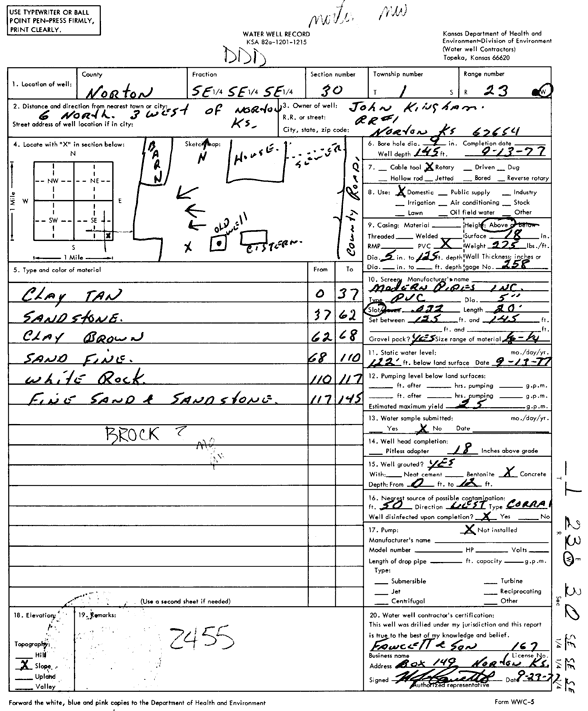 USE TYPEWRITER OR BALL
POINT PEN-PRESS FIRMLY,
PRINT CLEARLY.
WATER WELL RECORD
KSA 82a-1201-1215
Kansas Department of Health and
Environment-Division of Environment
(Water well Contractors)
Topeka, Kansas 66620
DDD
1. Location of well: County Fraction Section number Township number Range number
NORTON SE 1/4 SE 1/4 SE 1/4 30 T 1 S R 23 W
2. Distance and direction from nearest town or city: 6 NORTH. 3 WEST OF NORTON KS.
Street address of well location if in city:
3. Owner of well: JOHN KINGHAM.
R.R. or street: RR#1
City, state, zip code: NORTON KS 67654
4. Locate with "X" in section below:
N
NW NE
W E
SW SE
S
1 Mile
1 Mile
Sketch map:
N
BARN
HOUSE.
SEWER
COUNTY ROAD.
OLD WELL
CISTERN.
X
6. Bore hole dia. 9 in. Completion date
Well depth 145 ft. 9-13-77
7. Cable tool X Rotary Driven Dug
Hollow rod Jetted Bored Reverse rotary
8. Use: X Domestic Public supply Industry
Irrigation Air conditioning Stock
Lawn Oil field water Other
9. Casing: Material Height: Above or below
Threaded Welded Surface 18 in.
RMP PVC X Weight 275 lbs./ft.
Dia. 5 in. to 125 ft. depth Wall Thickness: inches or
Dia. in. to ft. depth gage No. 258
5. Type and color of material From To
CLAY TAN 0 37
SANDSTONE. 37 62
CLAY BROWN 62 68
SAND FINE. 68 110
WHITE ROCK. 110 117
FINE SAND & SANDSTONE. 117 145
BROCK ?
10. Screen: Manufacturer's name
MODERN PIPES INC.
Type PVC Dia. 5"
Slot/gauze .032 Length 20'
Set between 125 ft. and 145 ft.
ft. and ft.
Gravel pack? YES Size range of material
11. Static water level: mo./day/yr.
122' ft. below land surface Date 9-13-77
12. Pumping level below land surfaces:
ft. after hrs. pumping g.p.m.
ft. after hrs. pumping g.p.m.
Estimated maximum yield 25 g.p.m.
13. Water sample submitted: mo./day/yr.
Yes X No Date
14. Well head completion:
Pitless adapter 18 Inches above grade
15. Well grouted? YES
With: Neat cement Bentonite X Concrete
Depth: From 0 ft. to 12 ft.
16. Nearest source of possible contamination:
ft. 50 Direction WEST Type CORRAL
Well disinfected upon completion? X Yes No
17. Pump: X Not installed
Manufacturer's name
Model number HP Volts
Length of drop pipe ft. capacity g.p.m.
Type:
Submersible Turbine
Jet Reciprocating
Centrifugal Other
(Use a second sheet if needed)
18. Elevation:
Topography:
Hill
X Slope
Upland
Valley
19. Remarks:
2455
20. Water well contractor's certification:
This well was drilled under my jurisdiction and this report
is true to the best of my knowledge and belief.
FAWCETT & SON 167
Business name License No.
Address BOX 149 NORTON KS.
Signed Date 9-29-77
Authorized representative
Forward the white, blue and pink copies to the Department of Health and Environment
Form WWC-5
T 1 R 23 W Sec 30 SE 1/4 SE 1/4 SE 1/4